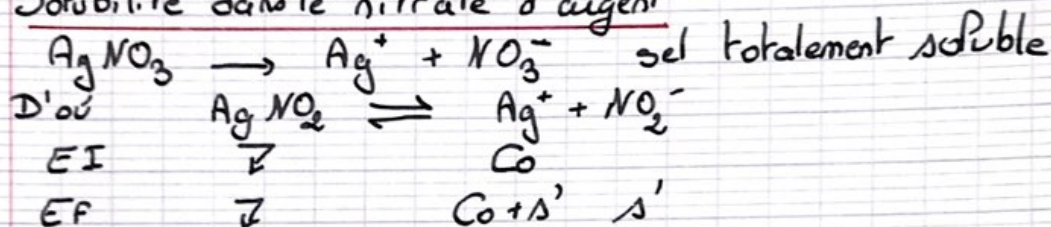 Solubilité dans le nitrate d'argent
AgNO₃ → Ag⁺ + NO₃⁻ sel totalement soluble
D'où AgNO₂ ⇌ Ag⁺ + NO₂⁻
EI ↧ Co
EF ↧ Co+s' s'